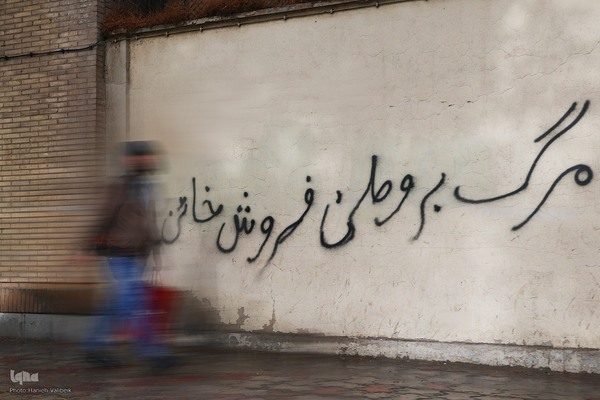 مرگ بر وطن فروش خائن
iqna
Photo: Hanieh Valibeik